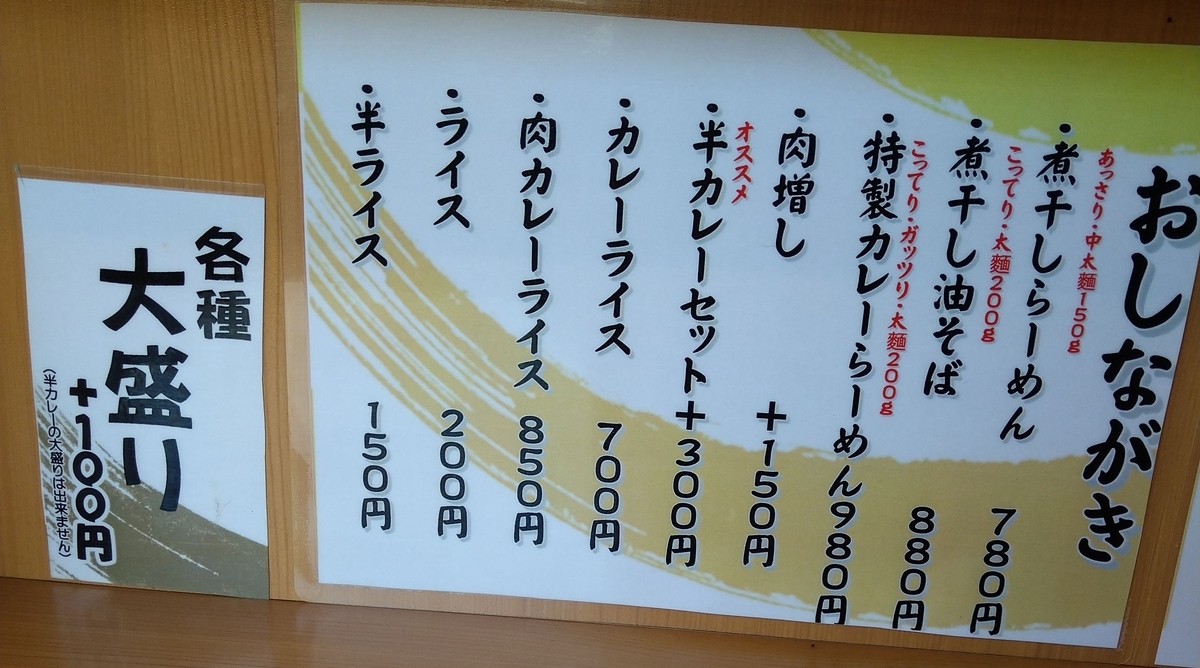 おしながき
あっさり・中太麺150g
・煮干しらーめん 780円
こってり・太麺200g
・煮干し油そば 880円
こってり・ガッツリ・太麺200g
・特製カレーらーめん980円
・肉増し +150円
オススメ
・半カレーセット+300円
・カレーライス 700円
・肉カレーライス 850円
・ライス 200円
・半ライス 150円
各種
大盛り
+100円
(半カレーの大盛りは出来ません)